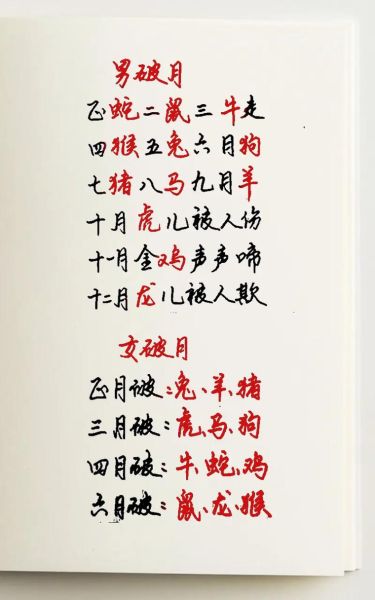 男破月
正蛇二鼠三牛走
四猴五兔六月狗
七猪八马九月羊
十月虎儿被人伤
十一月金鸡声声啼
十二月龙儿被人欺
女破月
正月破:兔、羊、猪
三月破:虎、马、狗
四月破:牛、蛇、鸡
六月破:鼠、龙、猴